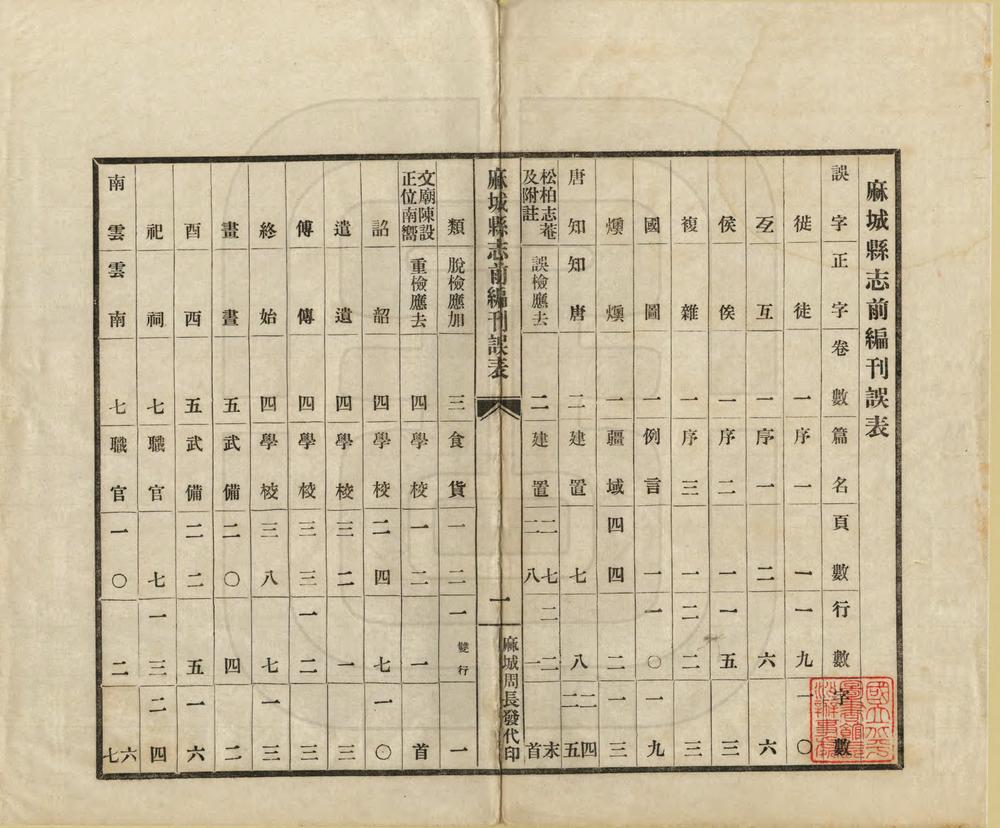 麻城縣志前編刊誤表
誤字 正字 卷數 篇名 頁數 行數 字數
徙 徒 一 序一 一 一九 一〇
㸦 互 一 序一 二 六 六
侯 俟 一 序二 一 一五 三
複 雜 一 序三 一 二二 三
國 圖 一 例言 一 一〇 一九
燠 燠 一 疆域 四四 二 一三
唐知 知唐 二 建置 七 八 二四 二五
松柏志菴及附註 誤檢應去 二 建置 二七 二八 二二 一 末首
麻城縣志前編刊誤表 一 麻城周長發代印
類 脫檢應加 三 食貨 一二 一雙行 一
文廟陳設正位南嚮 重檢應去 四 學校 一二 一 首
詔 韶 四 學校 二四 七 一〇
遣 遺 四 學校 三二 一 三
傅 傳 四 學校 三三 一二 三
終 始 四 學校 三八 七 一三
畫 晝 五 武備 二〇 四 二
酉 西 五 武備 二二 五 一六
祀 祠 七 職官 七 一三 二四
南雲 雲南 七 職官 一〇 二 六七